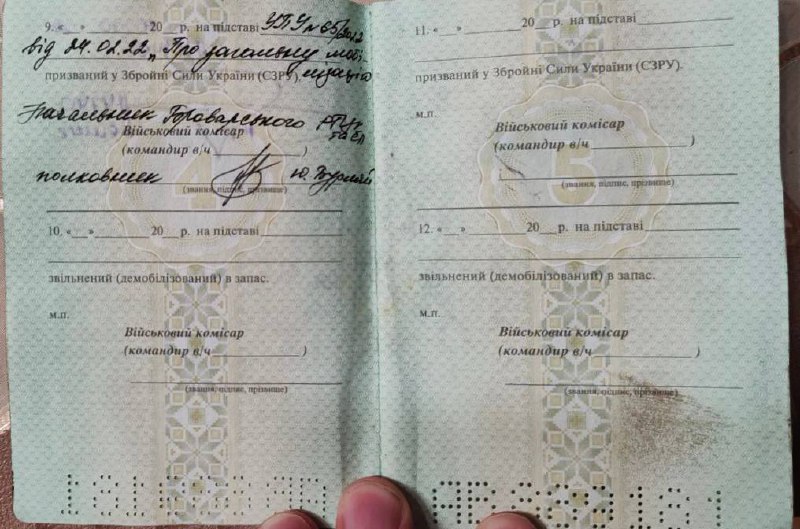 9. «__» ______ 20__ р. на підставі УПУ № 65/2022
від 24.02.22 „Про загальну мобі-
призваний у Збройні Сили України (СЗРУ). лізацію
Начальник Броварського РТЦК
та СП
Військовий комісар
(командир в/ч __________)
полковник Ю. Бурлай
(звання, підпис, прізвище)
10. «__» ______ 20__ р. на підставі
звільнений (демобілізований) в запас.
м.п.
Військовий комісар
(командир в/ч __________)
(звання, підпис, прізвище)
11. «__» ______ 20__ р. на підставі
призваний у Збройні Сили України (СЗРУ).
м.п.
Військовий комісар
(командир в/ч __________)
5
(звання, підпис, прізвище)
12. «__» ______ 20__ р. на підставі
звільнений (демобілізований) в запас.
м.п.
Військовий комісар
(командир в/ч __________)
(звання, підпис, прізвище)